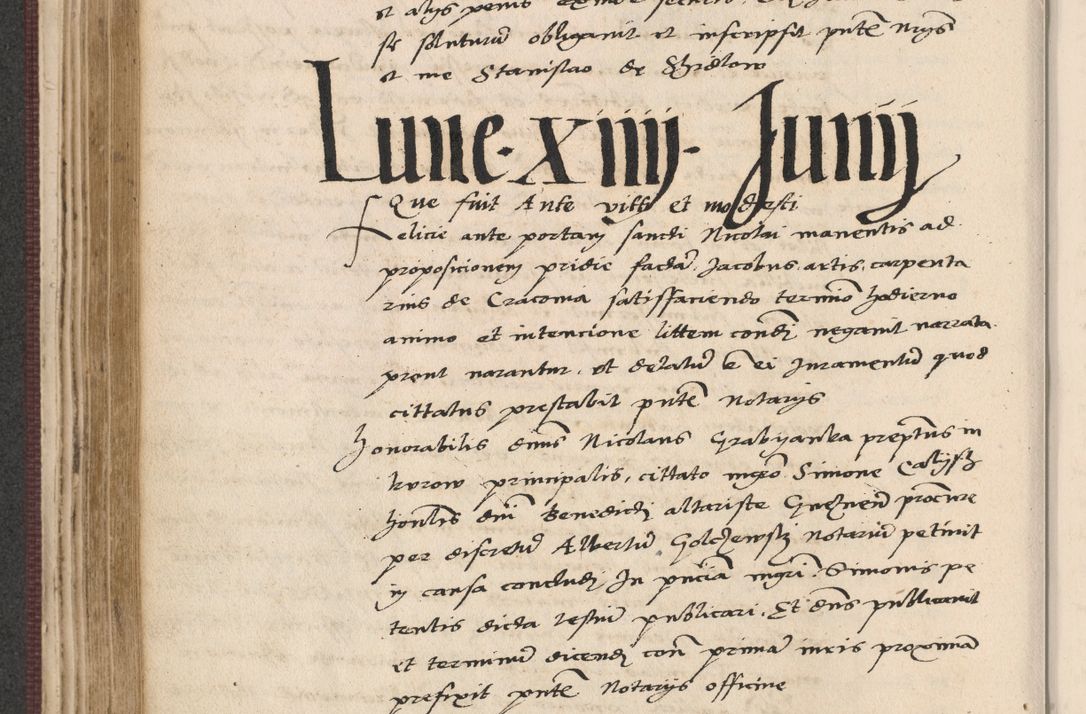 et alijs penis
se soluturū obligavit et inscripsit pntē nrijs
et me Stanislao de
Lune · xiiij · Junij
Que fuit Ante viti et modesti
Felicis ante portam sancti Nicolai manentis ad
proposicionem pridie factā Jacobus artis carpenta
rius de Cracovia satisfaciendo termīo hodierno
animo et intencione littem contī negavit narrata
prout narantur et delatū ē ei Juramentū quod
cittatus prestabit pntē Notarijs
Honorabilis dn̄us Nicolaus Grabyanka prep̄tus in
kurow principalis, cittato mgrō Simone
hon̄lis dnī Benedicti altariste Gneznen̄ procure
per discretū Albertū Golczewsky notariū petiuit
in causa concludi In pn̄cia mgrī Simonis pe
tentis dicta testiū publicari. Et dn̄s publicavit
et terminū dicendi con̄ primā iuris proximā
prefixit pntē Notarijs officine